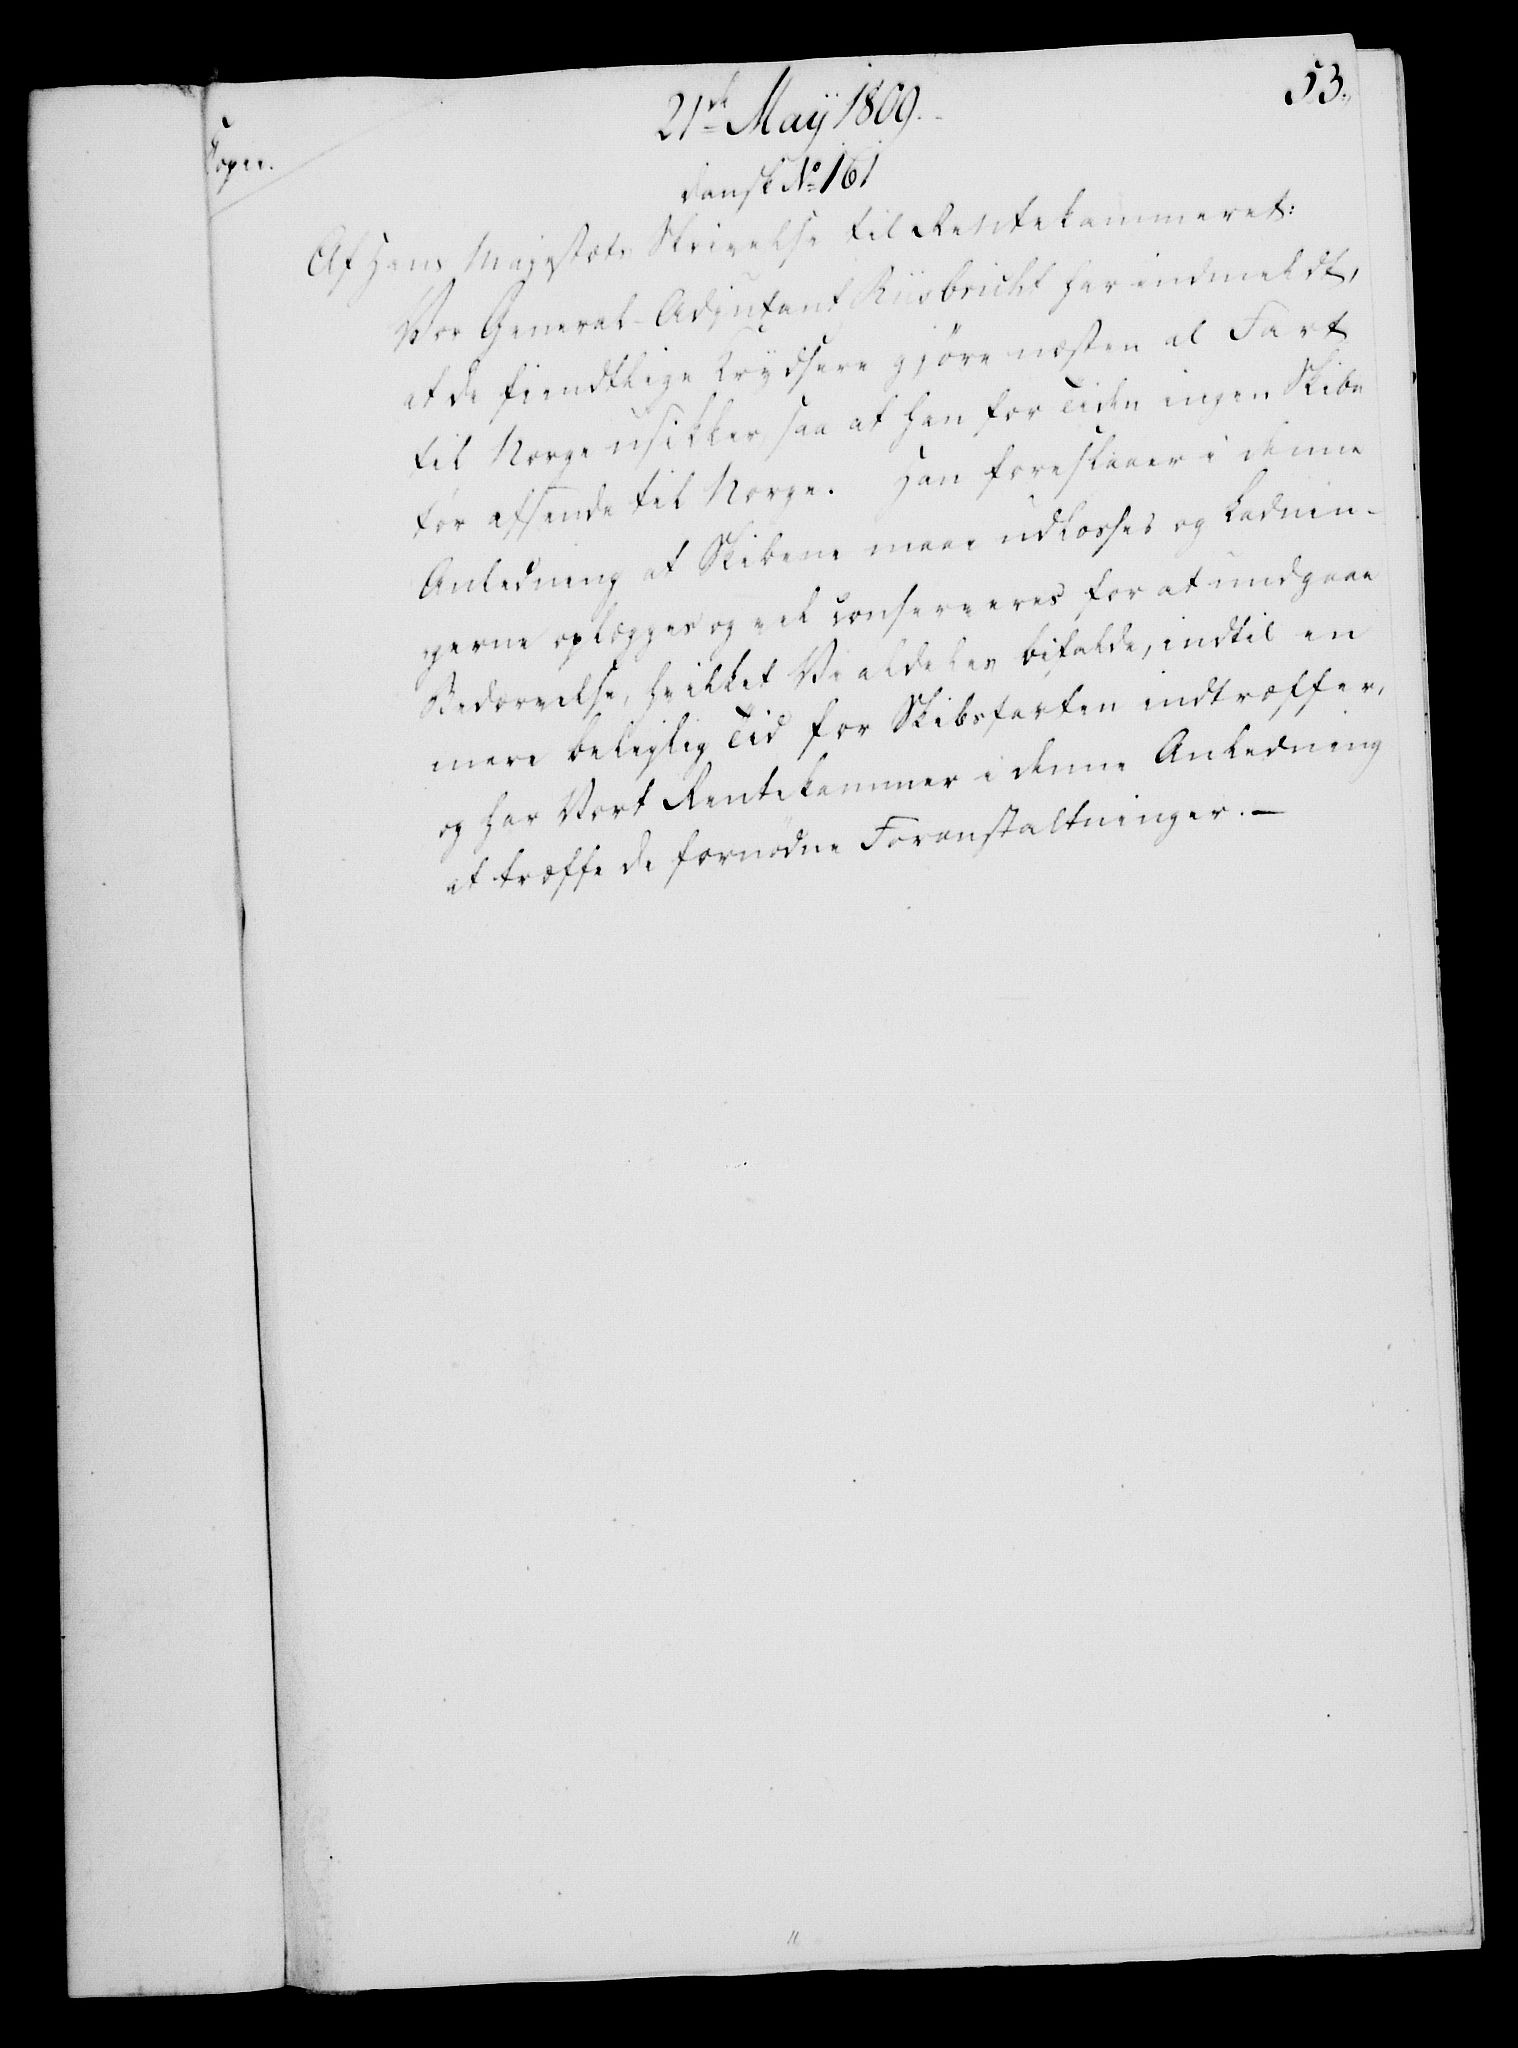 53.
21de Maÿ 1809.
Copie.
dansk No 161
Af Hans Majestæts Skrivelse til Rentekammeret:
Vor General-Adjutant Riisbricht har indmeldt,
at de fiendtlige Krydsere gjöre næsten al Fart
til Norge usikker, saa at han for Tiden ingen Skibe
tör afsende til Norge. Han foreslaaer i denne
Anledning at Skibene maae udlosses og Ladnin-
gerne oplægges og vel conserveres for at undgaae
Bedærvelse, hvilket Vi aldeles bifalde, indtil en
mere beleylig Tid for Skibsfarten indtræffer,
og har Vort Rentekammer i denne Anledning
at træffe de fornödne Foranstaltninger. —